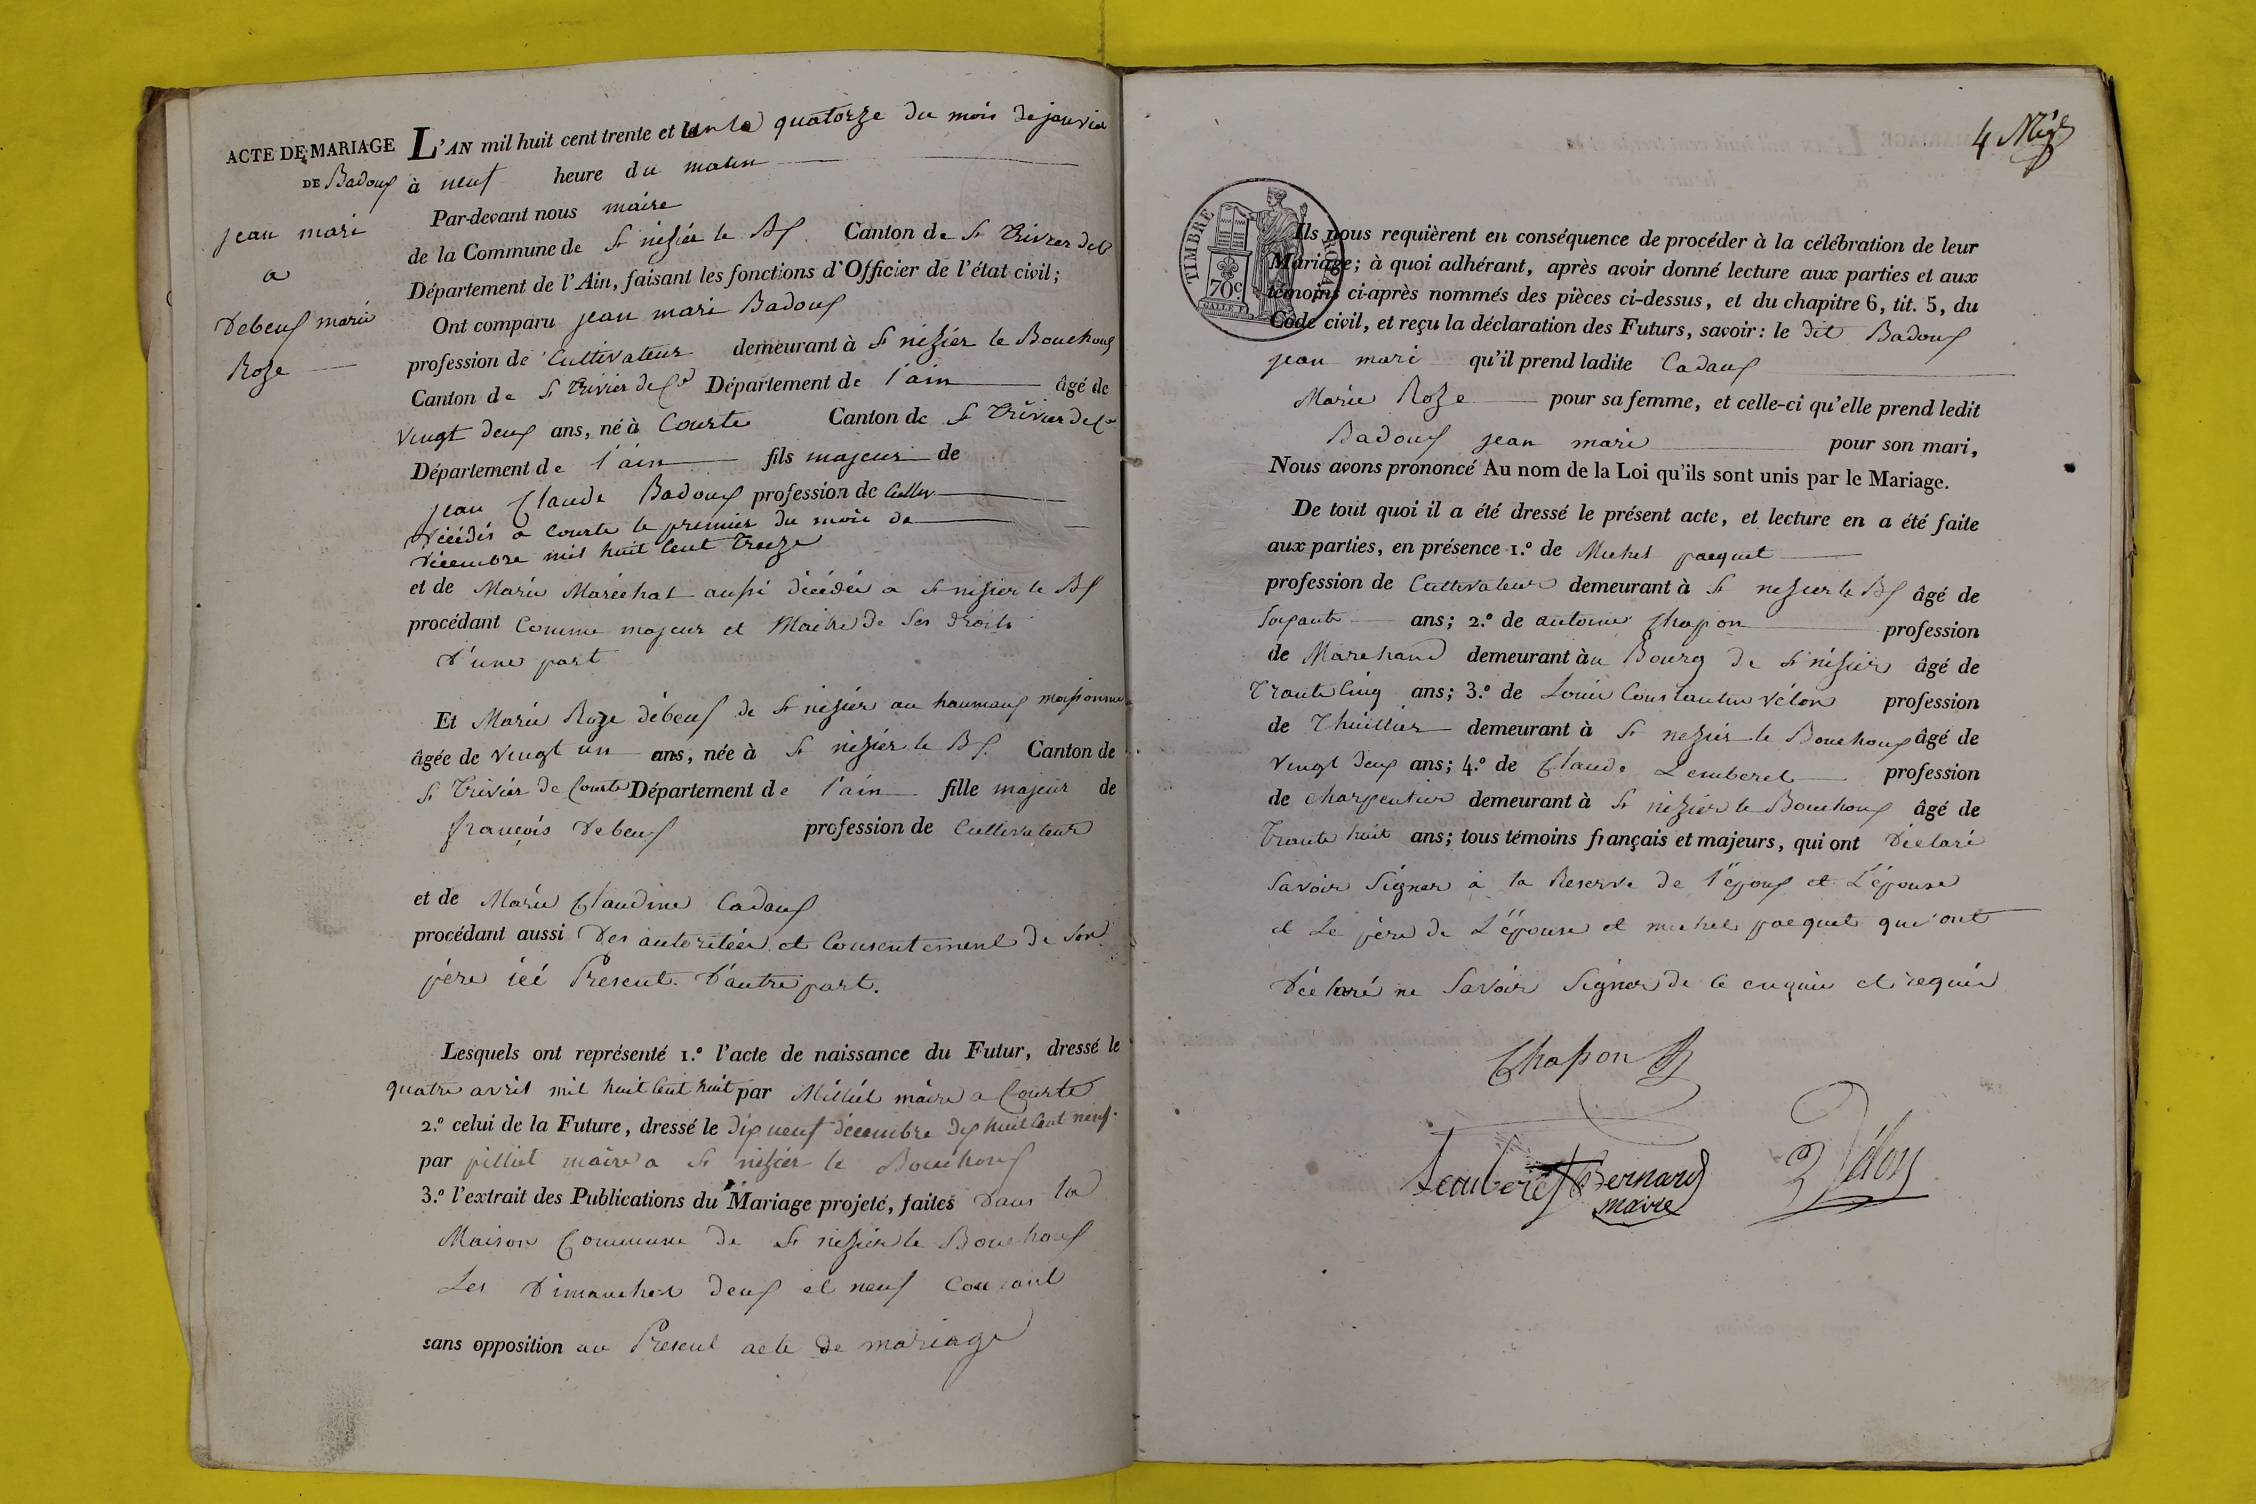 ACTE DE MARIAGE
DE Badoux
jean mari
a
Debeuf marie
Roze
L'AN mil huit cent trente et un le quatorze du mois de janvier
à neuf heure du matin
Par-devant nous maire
de la Commune de St nizier le Bx Canton de St Trivier de C
Département de l'Ain, faisant les fonctions d'Officier de l'état civil;
Ont comparu jean mari Badoux
profession de Cultivateur demeurant à St nizier le Bouchoux
Canton de St Trivier de Cte Département de l'ain âgé de
vingt deux ans, né à Courte Canton de St Trivier de Cte
Département de l'ain fils majeur de
jean Claude Badoux profession de Cultiv
décédés a Courte le premier du mois de
décembre mil huit Cent Treize
et de Marie Maréchal aussi décédée a St nizier le Bx
procédant Comme majeur et Maitre de Ses droits
D'une part
Et Marie Roze débeuf de St nizier au haumaux
âgée de vingt un ans, née à St nizier le Bx. Canton de
St Trivier de Courte Département de l'ain fille majeur de
françois Debeuf profession de Cultivateur
et de Marie Claudine Cadoux
procédant aussi Des autoritées et Consentement de Son
père icé Present. D'autre part.
Lesquels ont représenté 1.º l'acte de naissance du Futur, dressé le
quatre avril mil huit Cent huit par Milliet maire a Courte
2.º celui de la Future, dressé le dix neuf décembre dix huit Cent neuf
par pilliet maire a St nizier le Bouchoux
3.º l'extrait des Publications du Mariage projeté, faites Dans la
Maison Commune de St nizier le Bouchoux
Les Dimanches deux et neuf Courant
sans opposition au Present acte de mariage
4 
TIMBRE ROYAL
70c
Ils nous requièrent en conséquence de procéder à la célébration de leur
Mariage; à quoi adhérant, après avoir donné lecture aux parties et aux
témoins ci-après nommés des pièces ci-dessus, et du chapitre 6, tit. 5, du
Code civil, et reçu la déclaration des Futurs, savoir: le dit Badoux
jean mari qu'il prend ladite Cadoux
Marie Roze pour sa femme, et celle-ci qu'elle prend ledit
Badoux jean mari pour son mari,
Nous avons prononcé Au nom de la Loi qu'ils sont unis par le Mariage.
De tout quoi il a été dressé le présent acte, et lecture en a été faite
aux parties, en présence 1.º de Michel pacquet
profession de Cultivateur demeurant à St nezier le Bx âgé de
Soixante ans; 2.º de antoine Chapon profession
de Marchand demeurant àu Bourg de St nizier âgé de
Trante Cinq ans; 3.º de Louis Constantin Vélon profession
de Thuillier demeurant à St nezier le Bouchoux âgé de
vingt deux ans; 4.º de Claude Lemberet profession
de charpentier demeurant à St nizier le Bouchoux âgé de
Trante huit ans; tous témoins français et majeurs, qui ont Déclaré
Savoir Signer à la Reserve de l'époux et L'épouse
et Le père de L'épouse et michel pacquet qui ont
Déclaré ne Savoir Signer de ce enquie et requie
Chapon
Bernard
maire